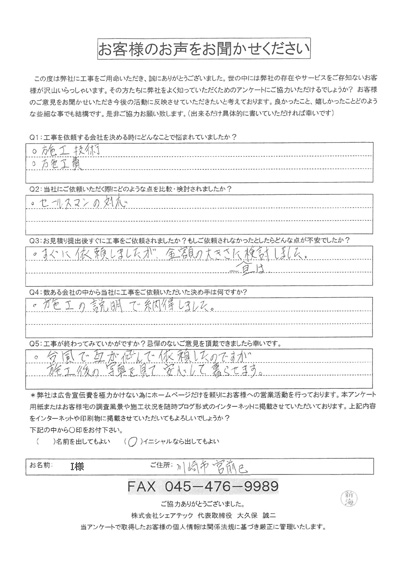 お客様のお声をお聞かせください
この度は弊社に工事をご用命いただき、誠にありがとうございました。世の中には弊社の存在やサービスをご存知ないお客
様が沢山いらっしゃいます。その方たちに弊社をよく知っていただくためのアンケートにご協力いただけるでしょうか? お客様
のご意見をお聞かせいただき今後の活動に反映させていただきたいと考えております。良かったこと、嬉しかったことどのよう
な些細な事でも結構です。是非ご協力お願い致します。(出来るだけ具体的に書いていただければ幸いです)
Q1:工事を依頼する会社を決める時にどんなことで悩まれていましたか?
○施工技術
○施工費
Q2:当社にご依頼いただく際にどのような点を比較・検討されましたか?
○セールスマンの対応
Q3:お見積り提出後すぐに工事をご依頼されましたか?もしご依頼されなかったとしたらどんな点が不安でしたか?
○すぐに依頼しましたが金額の大きさに検討しました。
Q4:数ある会社の中から当社に工事をご依頼いただいた決め手は何ですか?
○施工の説明で納得しました。
Q5:工事が終わってみていかがですか?忌憚のないご意見を頂戴できましたら幸いです。
○台風で瓦が飛んで依頼したのですが
施工後の写真を見て安心して暮らせます。
*弊社は広告宣伝費を極力かけない為にホームページだけを頼りにお客様への営業活動を行っております。本アンケート
用紙またはお客様宅の調査風景や施工状況を随時ブログ形式のインターネットに掲載させていただいております。上記内容
をインターネットや印刷物に掲載させていただいてもよろしいでしょうか?
下記の中から○印をお付下さい。
( )名前を出してもよい (○)イニシャルなら出してもよい
お名前: I様 ご住所: 川崎市宮前区
FAX 045-476-9989
ご協力ありがとうございました。
株式会社シェアテック 代表取締役 大久保 誠二
当アンケートで取得したお客様の個人情報は関係法規に基づき厳正に管理いたします。